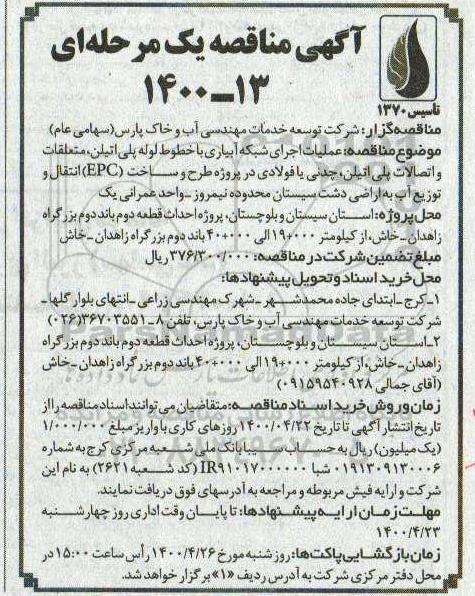 آگهی مناقصه یک مرحله‌ای
۱۳-۱۴۰۰
تاسیس ۱۳۷۰
مناقصه‌گزار: شرکت توسعه خدمات مهندسی آب و خاک پارس(سهامی عام)
موضوع مناقصه: عملیات اجرای شبکه آبیاری با خطوط لوله پلی اتیلن، متعلقات
و اتصالات پلی اتیلن، چدنی یا فولادی در پروژه طرح و ساخت (EPC) انتقال و
توزیع آب به اراضی دشت سیستان محدوده نیمروز - واحد عمرانی یک
محل پروژه: استان سیستان و بلوچستان، پروژه احداث قطعه دوم باند دوم بزرگراه
زاهدان - خاش، از کیلومتر ۰۰۰+۱۹ الی ۰۰۰+۴۰ باند دوم بزرگراه زاهدان - خاش
مبلغ تضمین شرکت در مناقصه: ۳۷۶/۳۰۰/۰۰۰ ریال
محل خرید اسناد و تحویل پیشنهادها:
۱- کرج - ابتدای جاده محمدشهر - شهرک مهندسی زراعی - انتهای بلوار گلها -
شرکت توسعه خدمات مهندسی آب و خاک پارس، تلفن ۸-۳۶۷۰۳۵۵۱(۰۲۶)
۲- استان سیستان و بلوچستان، پروژه احداث قطعه دوم باند دوم بزرگراه
زاهدان - خاش، از کیلومتر ۰۰۰+۱۹ الی ۰۰۰+۴۰ باند دوم بزرگراه زاهدان - خاش
(آقای جمالی ۰۹۱۵۹۵۴۰۹۲۸)
زمان و روش خرید اسناد مناقصه: متقاضیان می‌توانند اسناد مناقصه را از
تاریخ انتشار آگهی تا تاریخ ۱۴۰۰/۰۴/۲۲ روزهای کاری با واریز مبلغ ۱/۰۰۰/۰۰۰
(یک میلیون) ریال به حساب سیبا بانک ملی شعبه مرکزی کرج به شماره
۰۱۹۱۳۰۹۱۳۰۰۰۶ شبا IR۹۱۰۱۷۰۰۰۰۰۰۰ (کد شعبه ۲۶۲۱) به نام این
شرکت و ارایه فیش مربوطه و مراجعه به آدرسهای فوق دریافت نمایند.
مهلت زمان ارایه پیشنهادها: تا پایان وقت اداری روز چهارشنبه
۱۴۰۰/۴/۲۳
زمان بازگشایی پاکت‌ها: روز شنبه مورخ ۱۴۰۰/۴/۲۶ رأس ساعت ۱۵:۰۰ در
محل دفتر مرکزی شرکت به آدرس ردیف «۱» برگزار خواهد شد.